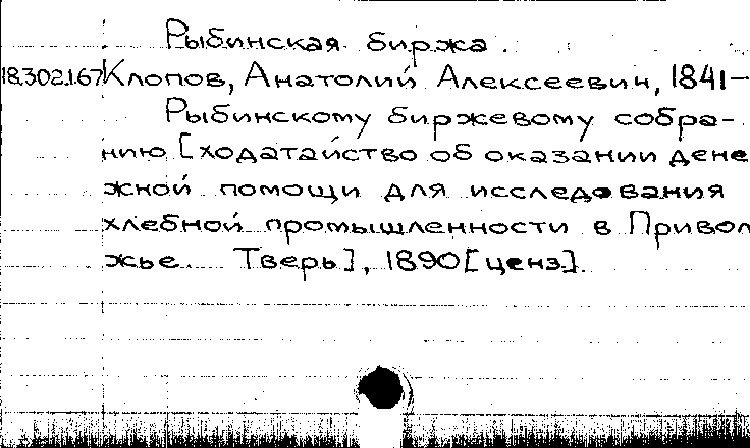 Рыбинская биржа.
18.302.1.67 Клопов, Анатолий Алексеевич, 1841-
Рыбинскому биржевому собра-
нию [ходатайство об оказании дене
жной помощи для исследования
хлебной промышленности в Привол
жье. Тверь], 1890 [ценз].